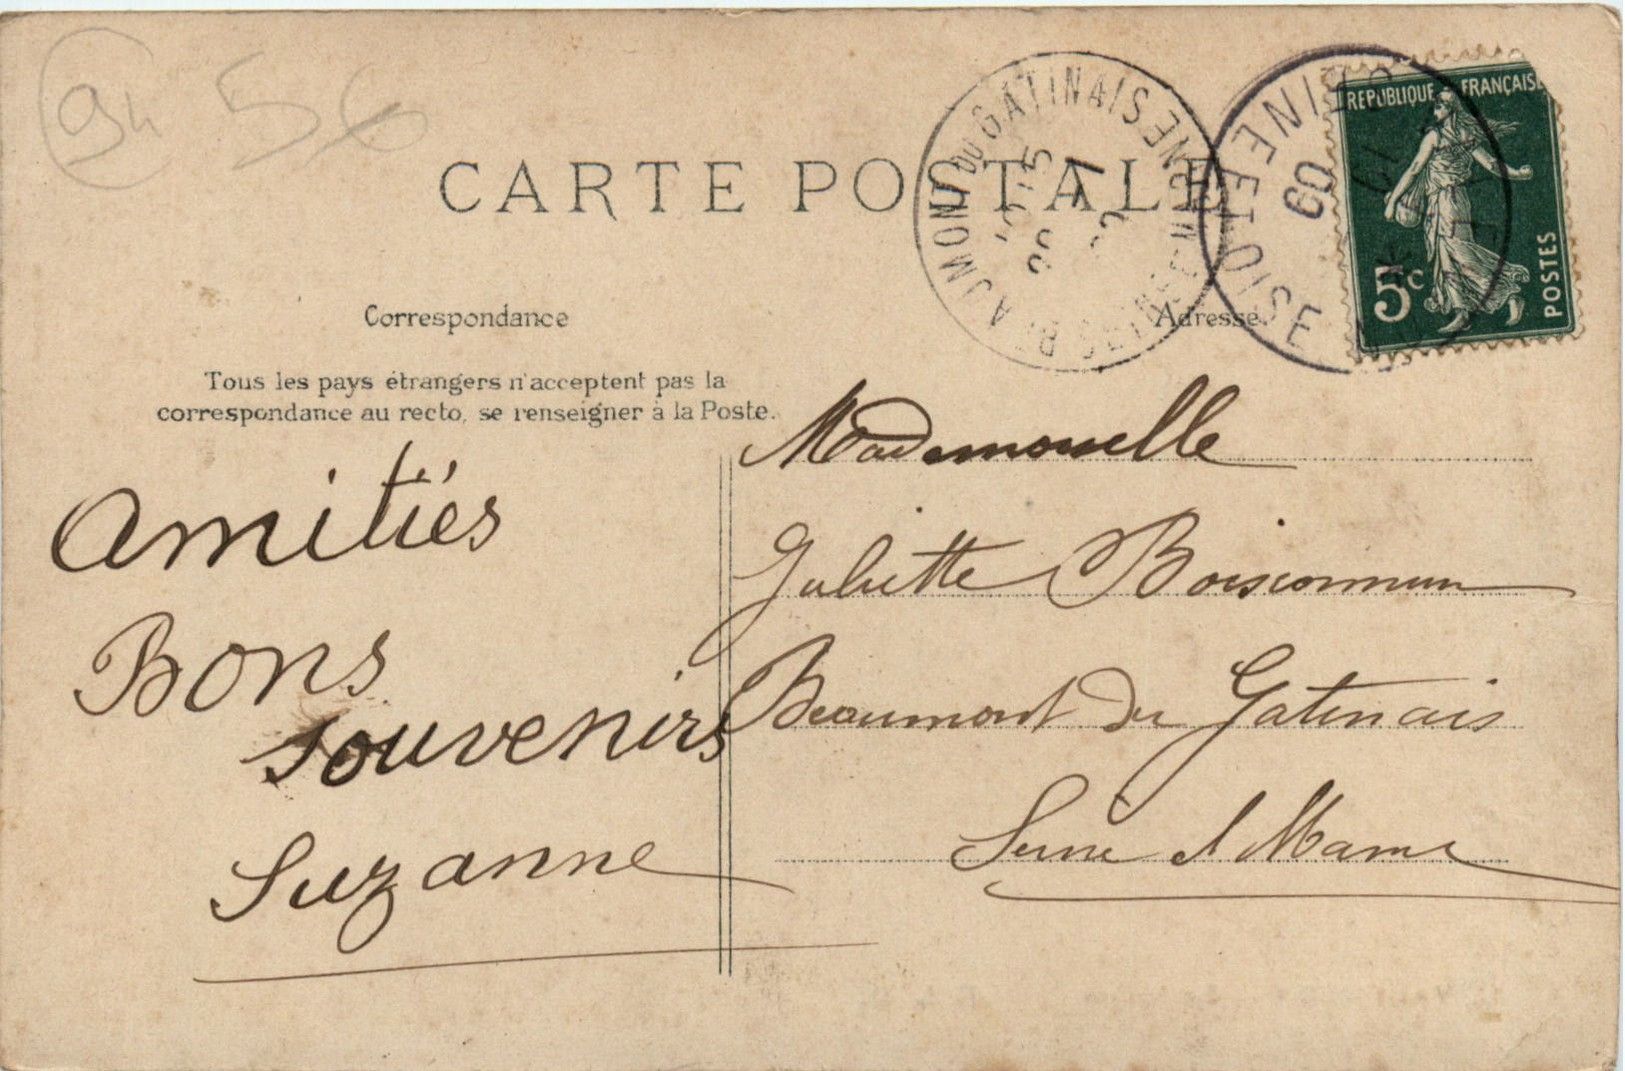 94 56
CARTE POSTALE
BEAUMONT DU GATINAIS
SEINE-ET-MARNE
SEINE ET OISE
09
REPUBLIQUE FRANÇAISE
5c
POSTES
Correspondance
Adresse
Tous les pays étrangers n'acceptent pas la
correspondance au recto, se renseigner à la Poste.
Amitiés
Bons
souvenirs
Suzanne
Mademoiselle
Juliette Boiscommun
Beaumont du Gatinais
Seine et Marne